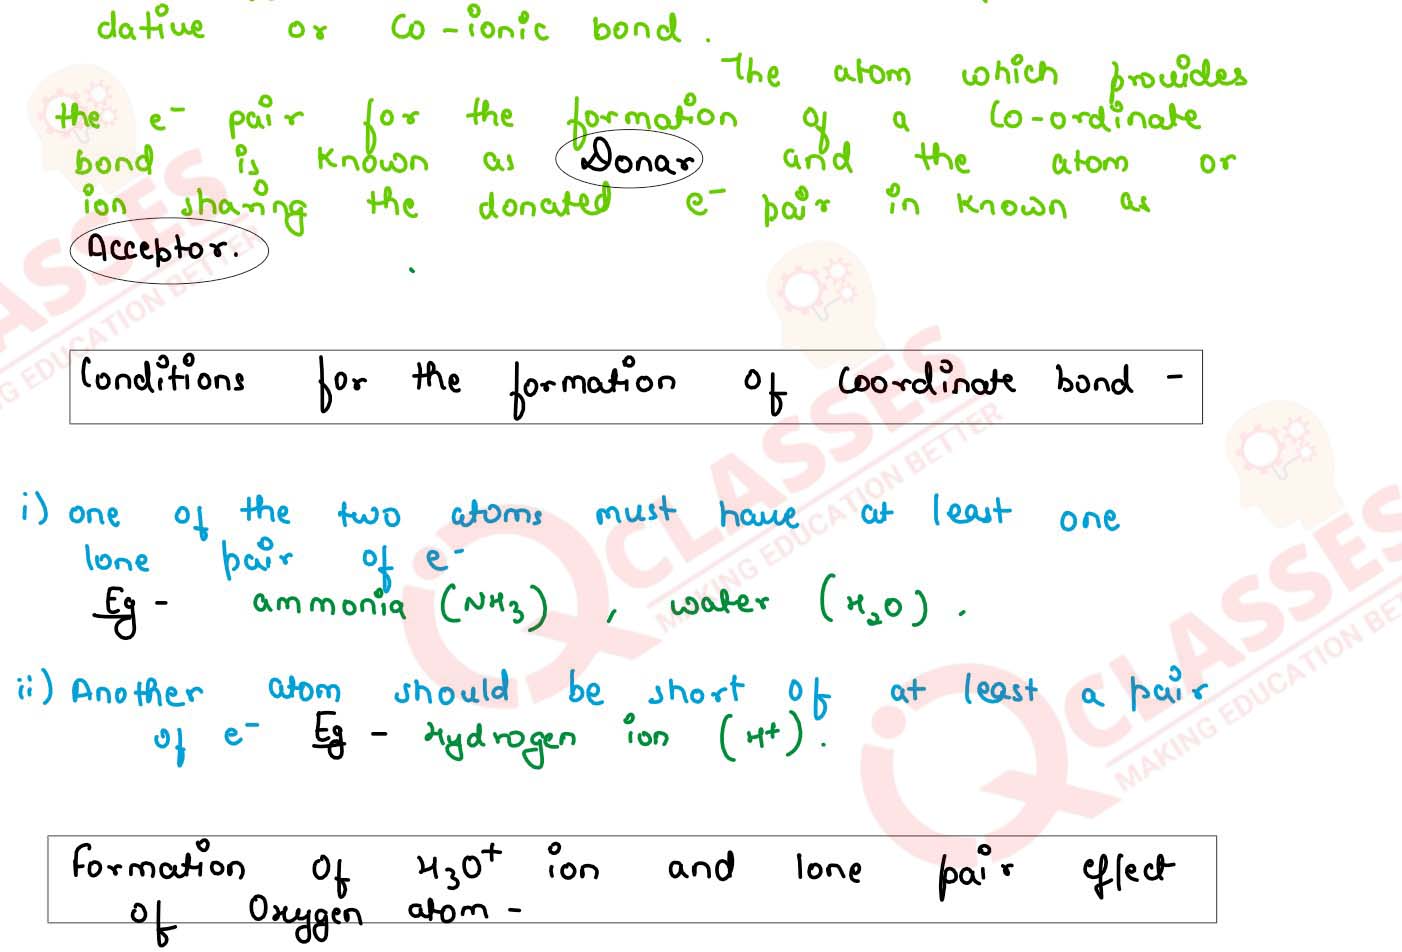 dative or Co-ionic bond.
The atom which provides
the e⁻ pair for the formation of a Co-ordinate
bond is known as Donar and the atom or
ion sharing the donated e⁻ pair in known as
Acceptor.
Conditions for the formation of Coordinate bond -
i) one of the two atoms must have at least one
lone pair of e⁻
Eg - ammonia (NH3), water (H₂O).
ii) Another atom should be short of at least a pair
of e⁻ Eg - Hydrogen ion (H+).
Formation of H3O⁺ ion and lone pair effect
of Oxygen atom -
CLASSES
MAKING EDUCATION BETTER
iQ CLASSES
MAKING EDUCATION BETTER
iQ CLASSES
MAKING EDUCATION BE